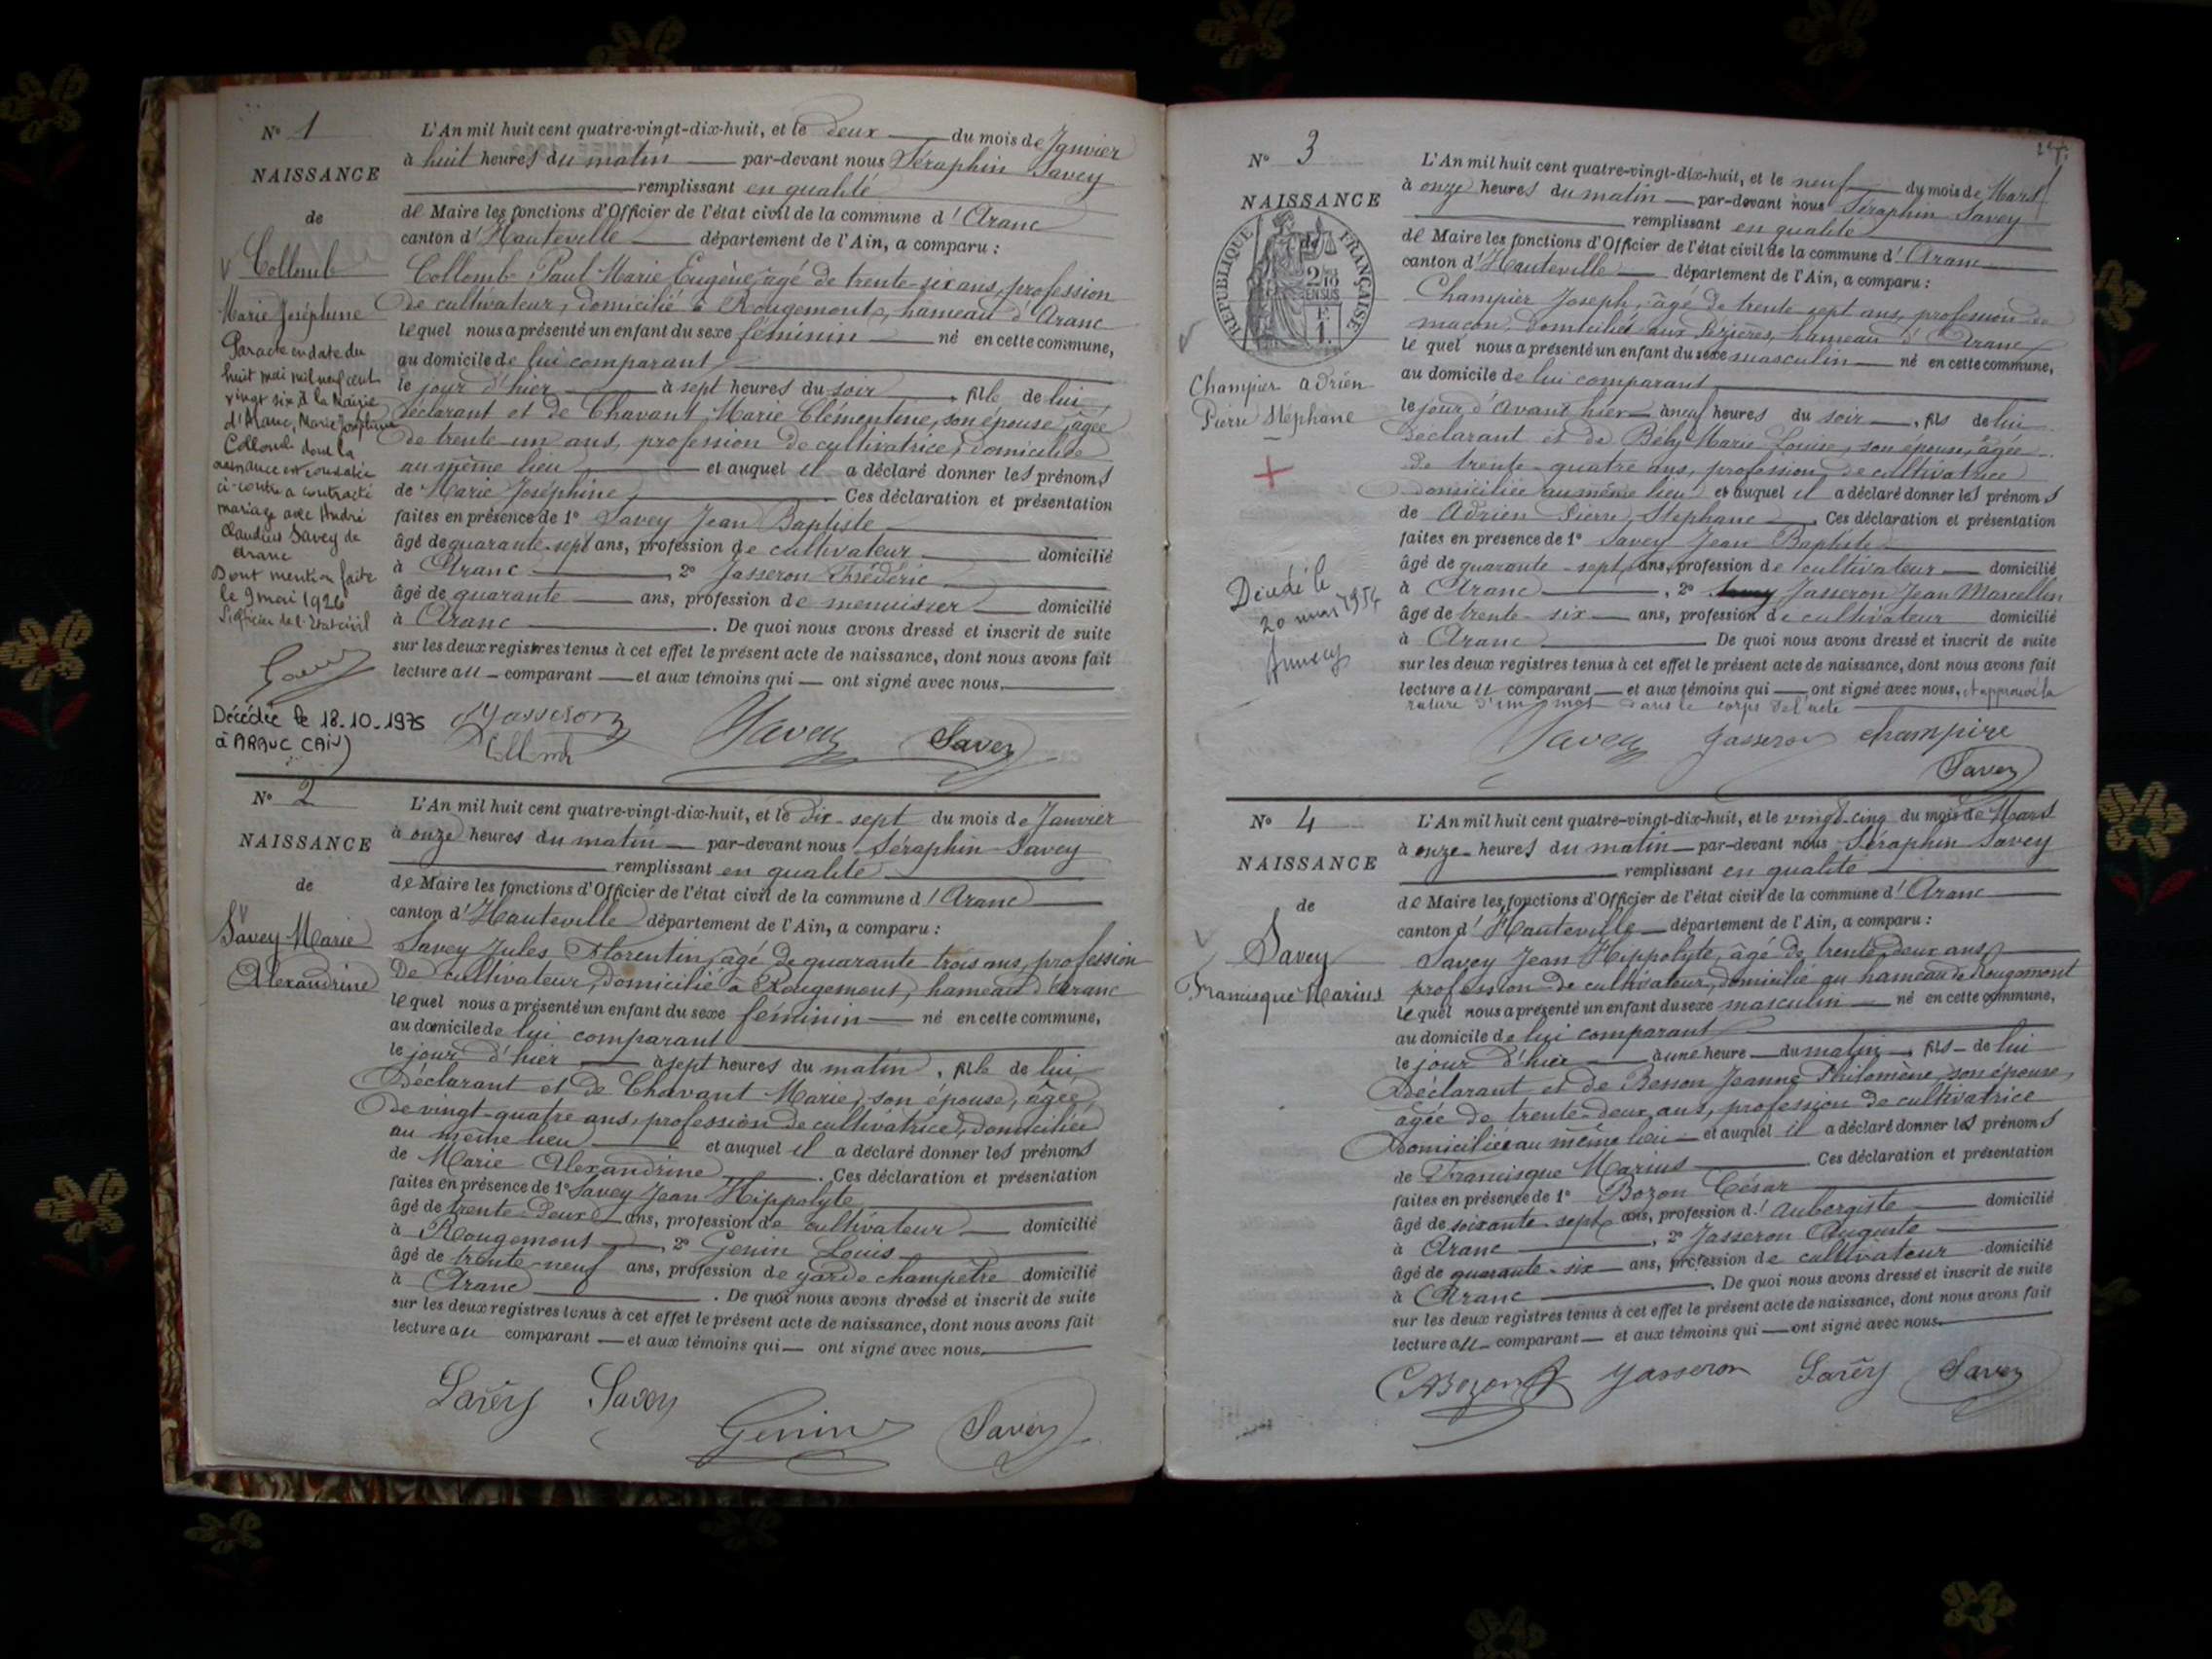 N° 1
NAISSANCE
de
Collomb
Marie Joséphine
Par acte en date du
huit mai mil neuf cent
vingt six à la Mairie
d'Aranc, Marie Joséphine
Collomb dont la
naissance est constatée
ci-contre a contracté
mariage avec André
Claudius Savey de
Aranc
Dont mention faite
le 9 mai 1926
L'officier de l'Etat civil
Décédée le 18-10-1975
à ARANC (AIN)
L'An mil huit cent quatre-vingt-dix-huit, et le deux du mois de Janvier
à huit heures du matin par-devant nous Séraphin Savey
remplissant en qualité
de Maire les fonctions d'Officier de l'état civil de la commune d'Aranc
canton d'Hauteville département de l'Ain, a comparu :
Collomb Paul Marie Eugène, âgé de trente-six ans, profession
de cultivateur, domicilié à Rougemont, hameau d'Aranc
lequel nous a présenté un enfant du sexe féminin né en cette commune,
au domicile de lui comparant
le jour d'hier à sept heures du soir, fille de lui
déclarant et de Chavant Marie Clémentine, son épouse, âgée
de trente-un ans, profession de cultivatrice, domiciliée
au même lieu et auquel il a déclaré donner les prénoms
de Marie Joséphine. Ces déclaration et présentation
faites en présence de 1° Savey Jean Baptiste
âgé de quarante-sept ans, profession de cultivateur domicilié
à Aranc, 2° Jasseron Frédéric
âgé de quarante ans, profession de menuisier domicilié
à Aranc. De quoi nous avons dressé et inscrit de suite
sur les deux registres tenus à cet effet le présent acte de naissance, dont nous avons fait
lecture au comparant et aux témoins qui ont signé avec nous.
Jasseron Savey Savey
Collomb
N° 2
NAISSANCE
de
Savey Marie
Alexandrine
L'An mil huit cent quatre-vingt-dix-huit, et le dix-sept du mois de Janvier
à onze heures du matin par-devant nous Séraphin Savey
remplissant en qualité
de Maire les fonctions d'Officier de l'état civil de la commune d'Aranc
canton d'Hauteville département de l'Ain, a comparu :
Savey Jules Florentin, âgé de quarante trois ans, profession
de cultivateur, domicilié à Rougemont, hameau d'Aranc
lequel nous a présenté un enfant du sexe féminin né en cette commune,
au domicile de lui comparant
le jour d'hier à sept heures du matin, fille de lui
déclarant et de Chavant Marie, son épouse, âgée
de vingt-quatre ans, profession de cultivatrice, domiciliée
au même lieu et auquel il a déclaré donner les prénoms
de Marie Alexandrine. Ces déclaration et présentation
faites en présence de 1° Savey Jean Hippolyte
âgé de trente-deux ans, profession de cultivateur domicilié
à Rougemont, 2° Genin Louis
âgé de trente-neuf ans, profession de garde champêtre domicilié
à Aranc. De quoi nous avons dressé et inscrit de suite
sur les deux registres tenus à cet effet le présent acte de naissance, dont nous avons fait
lecture au comparant et aux témoins qui ont signé avec nous.
Savey Savey
Genin Savey
N° 3
NAISSANCE
de
RÉPUBLIQUE FRANÇAISE
Champier Adrien
Pierre Stéphane
Décédé le
20 mars 1954
Annecy
L'An mil huit cent quatre-vingt-dix-huit, et le neuf du mois de Mars
à onze heures du matin par-devant nous Séraphin Savey
remplissant en qualité
de Maire les fonctions d'Officier de l'état civil de la commune d'Aranc
canton d'Hauteville département de l'Ain, a comparu :
Champier Joseph, âgé de trente sept ans, profession de
maçon, domicilié aux Pézières, hameau d'Aranc
lequel nous a présenté un enfant du sexe masculin né en cette commune,
au domicile de lui comparant
le jour d'avant hier à neuf heures du soir, fils de lui
déclarant et de Bély Marie Louise, son épouse, âgée
de trente-quatre ans, profession de cultivatrice
domiciliée au même lieu et auquel il a déclaré donner les prénoms
de Adrien Pierre Stephane. Ces déclaration et présentation
faites en présence de 1° Savey Jean Baptiste
âgé de quarante-sept ans, profession de cultivateur domicilié
à Aranc, 2° Jasseron Jean Marcellin
âgé de trente-six ans, profession de cultivateur domicilié
à Aranc De quoi nous avons dressé et inscrit de suite
sur les deux registres tenus à cet effet le présent acte de naissance, dont nous avons fait
lecture au comparant et aux témoins qui ont signé avec nous, et approuvé la
rature d'un mot dans le corps de l'acte
Savey Jasseron Champire
Savey
N° 4
NAISSANCE
de
Savey
Francisque Marius
L'An mil huit cent quatre-vingt-dix-huit, et le vingt-cinq du mois de Mars
à onze heures du matin par-devant nous Séraphin Savey
remplissant en qualité
de Maire les fonctions d'Officier de l'état civil de la commune d'Aranc
canton d'Hauteville département de l'Ain, a comparu :
Savey Jean Hippolyte, âgé de trente-deux ans,
profession de cultivateur, domicilié au hameau de Rougemont
lequel nous a présenté un enfant du sexe masculin né en cette commune,
au domicile de lui comparant
le jour d'hier à une heure du matin, fils de lui
déclarant et de Besson Jeanne Philomène, son épouse,
âgée de trente-deux ans, profession de cultivatrice
domiciliée au même lieu et auquel il a déclaré donner les prénoms
de Francisque Marius. Ces déclaration et présentation
faites en présence de 1° Bozon César
âgé de soixante-sept ans, profession d'aubergiste domicilié
à Aranc, 2° Jasseron Auguste
âgé de quarante-six ans, profession de cultivateur domicilié
à Aranc. De quoi nous avons dressé et inscrit de suite
sur les deux registres tenus à cet effet le présent acte de naissance, dont nous avons fait
lecture au comparant et aux témoins qui ont signé avec nous.
Bozon Jasseron Savey Savey